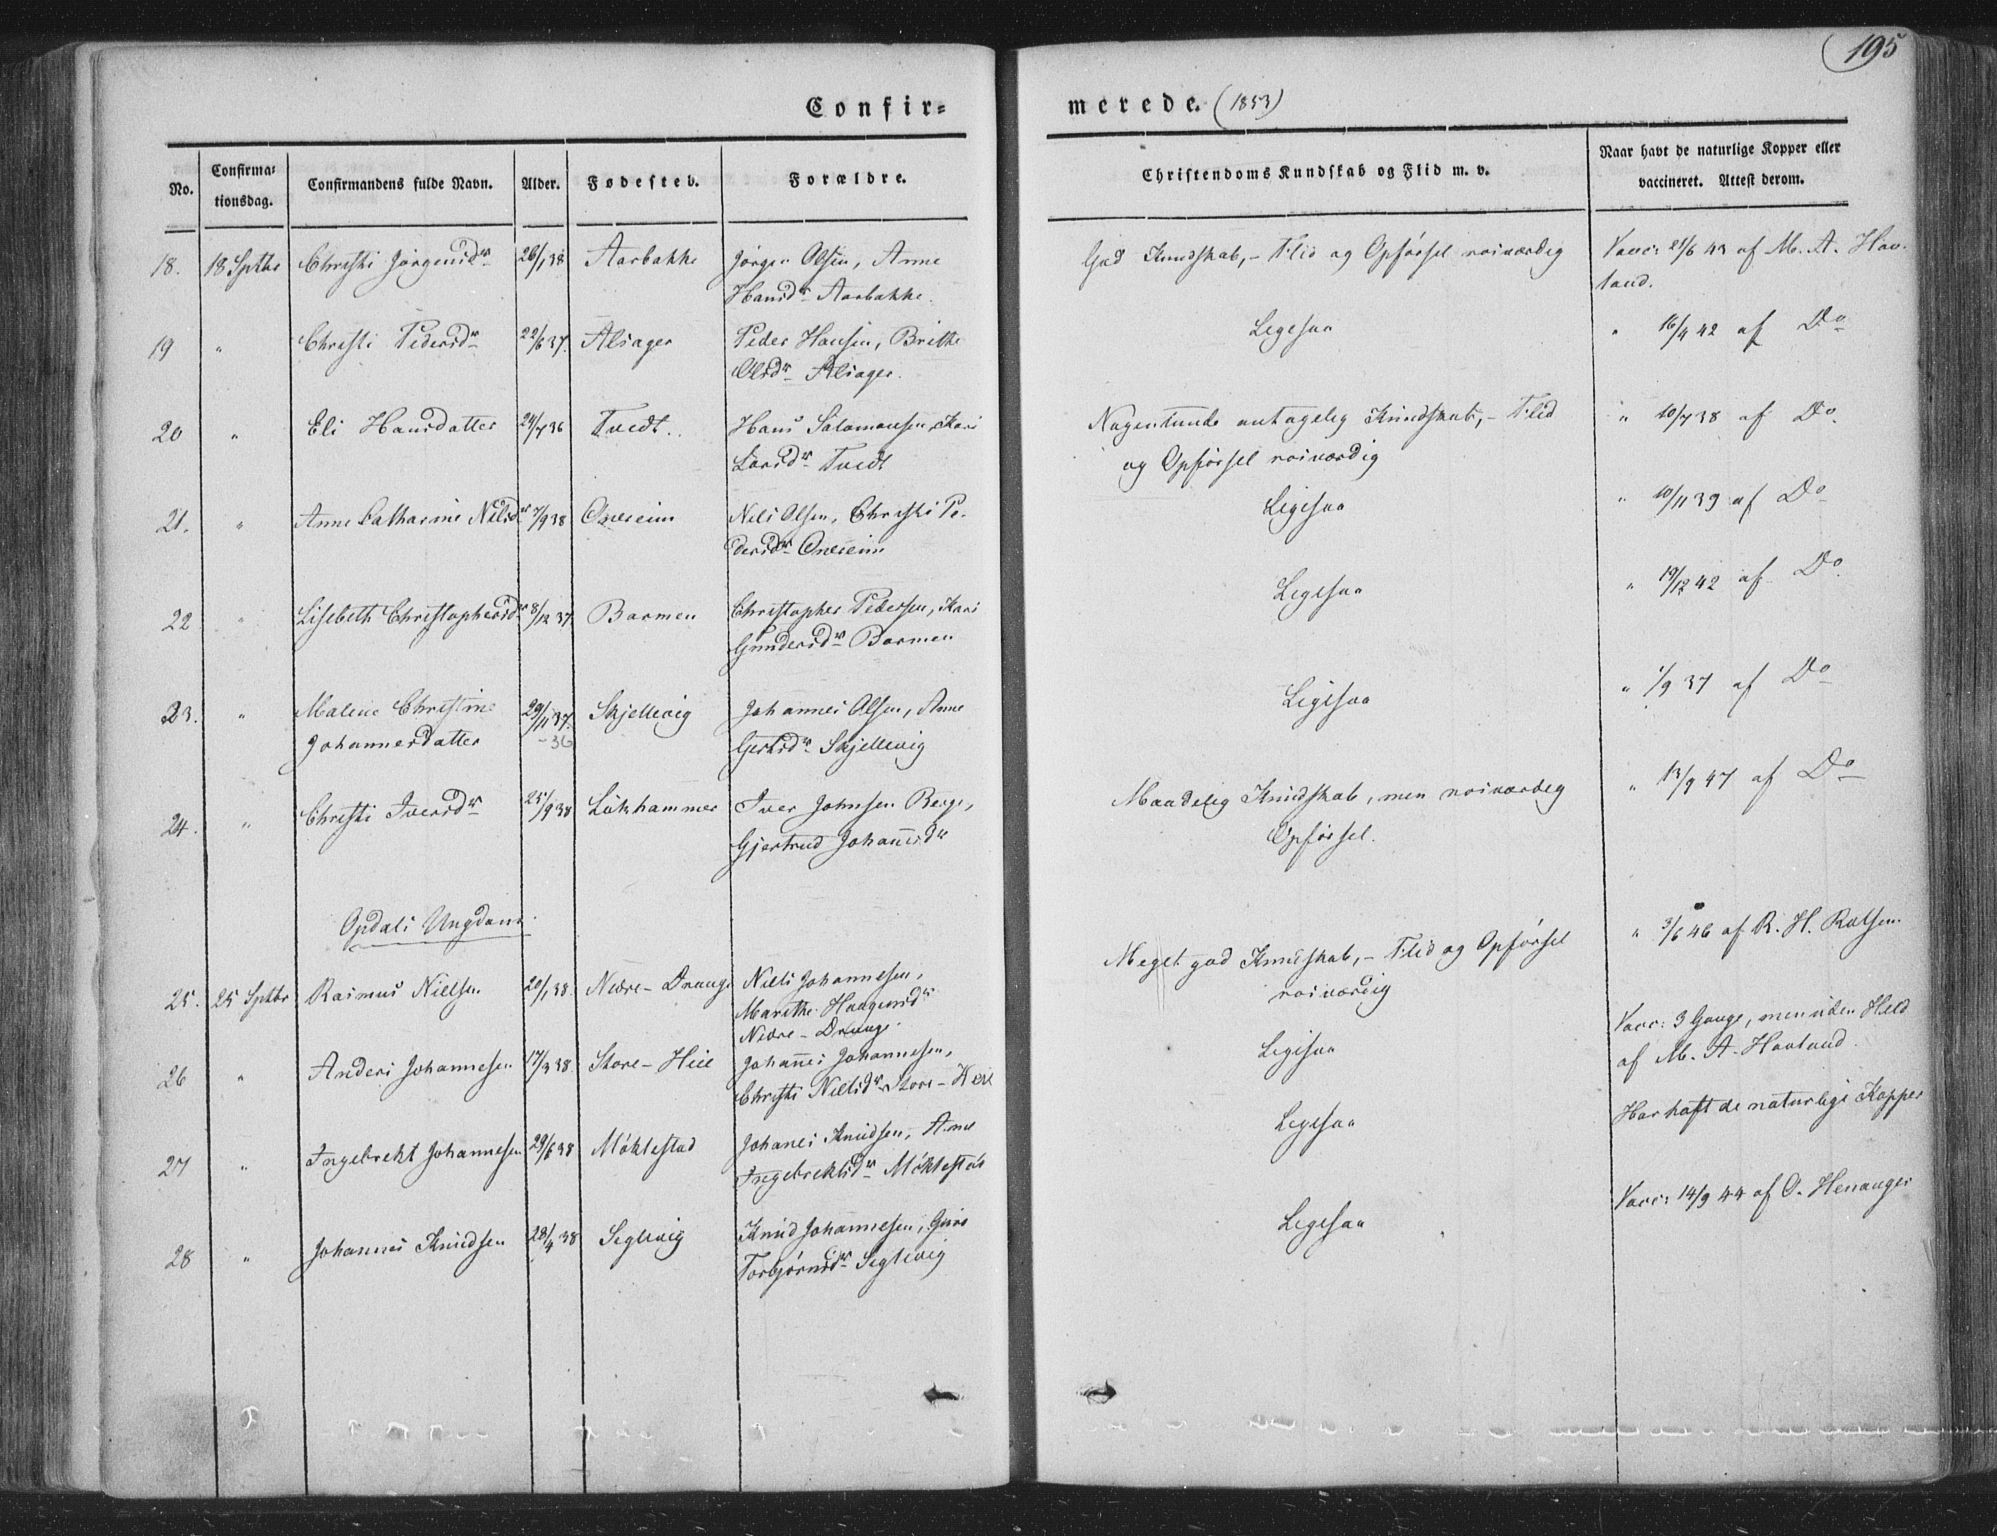 195
Confir=
merede. (1853)
No.
Confirma=
tionsdag.
Confirmandens fulde Navn.
Alder.
Fødested.
Forældre.
Christendoms Kundskab og Flid m. v.
Naar havt de naturlige Kopper eller
vaccineret. Attest derom.
18. 18 Sptbr Christi Jørgensdr 26/1 38 Aarbakke Jørgen Olsen, Anne
Hansdr Aarbakke.
God Kundskab, - Flid og Opførsel roisværdig
Vacc: 21/6 43 af M. A. Hav-
land.
19 " Christi Pedersdr 22/6 37. Alsager Peder Hansen, Brithe
Olsdr Alsager.
Ligesaa
" 16/4 42 af Do
20 " Eli Hansdatter 24/4 36 Tvedt. Hans Salomonsen, Kari
Larsdr Tvedt
Nogenlunde antagelig Kundskab, - Flid
og Opførsel roisværdig
" 10/7 38 af Do.
21. " Anne Catharine Nilsdr 7/9 38 Onereim Nils Olsen, Christi Pe-
dersdr Onereim
Ligesaa
" 10/11 39 af Do
22 " Lisebeth Christophersdr 8/12 37 Barmen Christopher Pedersen, Kari
Gundersdr Barmen
Ligesaa
" 19/12 42 af Do.
23. " Malene Christine 29/11 37. Skjellevig Johannes Olsen, Anne
Johannesdatter -36 Gertsdr Skjellevig
Ligesaa
" 1/9 37 af Do
24. " Christi Iversdr 25/9 38 Lukshammer Iver Johnsen Berge,
Gjertrud Johannesdr
Maadelig Kundskab, men roisværdig
Opførsel.
" 13/9 47 af Do
Opdals Ungdom.
25. 25 Sptbr Rasmus Nielsen 20/1 38. Nedre-Drange Niels Johannesen,
Marithe Haagensdr
Nedre-Drange.
Meget god Kundskab, - Flid og Opførsel
roisværdig
" 3/6 46 af R. H. Rolfsen
26 " Anders Johannesen 17/3 38. Store-Hiie Johannes Johannesen,
Christi Nielsdr Store-Hiie
Ligesaa
Vacc: 3 Gange, men uden Held
af M. A. Havland.
27 " Ingebrekt Johannesen 29/6 38 Møklestad Johanes Knudsen, Anne
Ingebrektsdr Møklestad
Ligesaa
Har haft de naturlige Kopper
28 " Johannes Knudsen 28/4 38 Seglevig Knud Johannesen, Guro
Torbjørnsdr Seglevig
Ligesaa
Vacc: 14/9 44 af O. Henanger